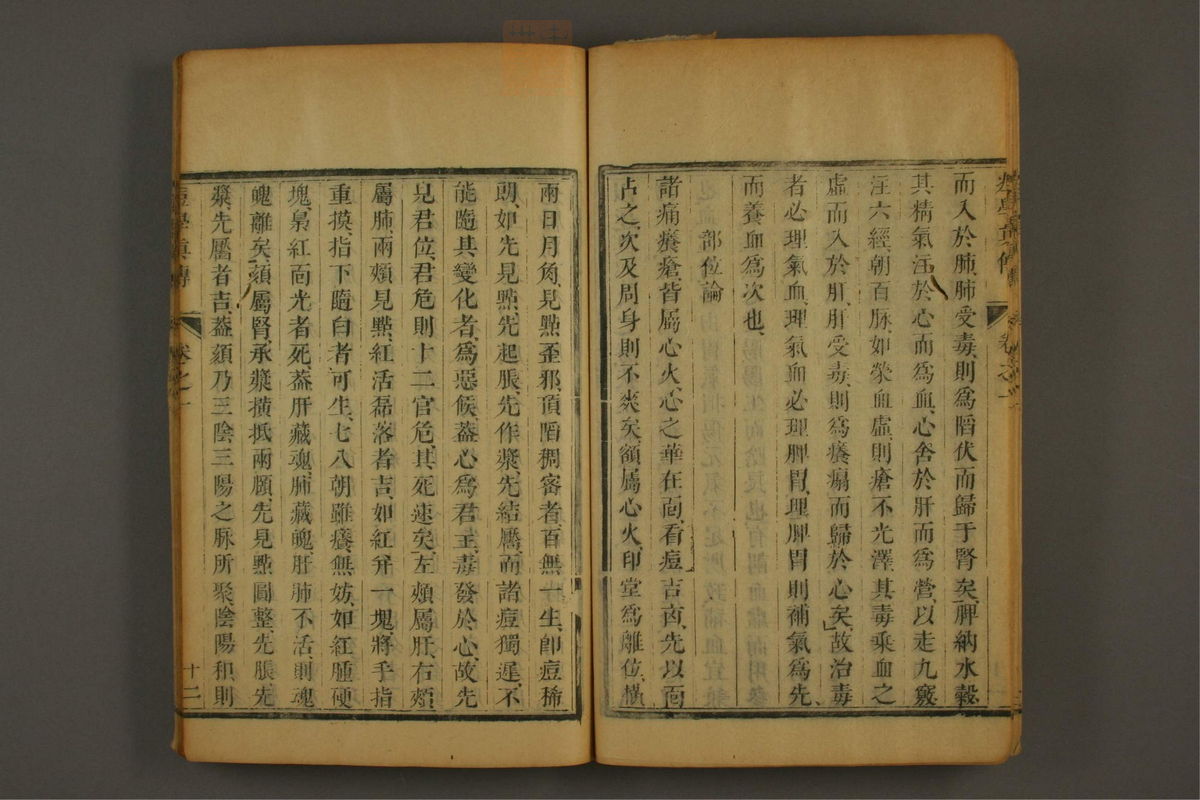 而入於肺肺受毒則爲陷伏而歸于腎矣脾納水穀
其精氣注於心而爲血心舍於肝而爲營以走九竅
注六經朝百脉如榮血虛則瘡不光澤其毒乘血之
虛而入於肝肝受毒則爲癢塌而歸於心矣故治毒
者必理氣血理氣血必理脾胃理脾胃則補氣爲先
而養血爲次也
部位論
諸痛癢瘡皆屬心火心之華在面看痘吉凶先以面
占之次及周身則不爽矣額屬心火印堂爲離位橫
兩日月角見㸃歪邪頂陷稠密者百無一生卽痘稀
朗如先見㸃先起脹先作漿先結靨而諸痘獨遲不
能隨其變化者爲惡候葢心爲君主毒發於心故先
見君位君危則十二官危其死速矣左頰屬肝右頰
屬肺兩頰見㸃紅活磊落者吉如紅幷一塊將手指
重摸指下隨白者可生七八朝雖癢無妨如紅腫硬
塊梟紅而光者死葢肝藏魂肺藏魄肝肺不活則魂
魄離矣頦屬腎承漿橫抵兩頤先見㸃圓整先脹先
漿先靨者吉葢頦乃三陰三陽之脉所聚陰陽和則
痘學眞傳
卷之一
十二